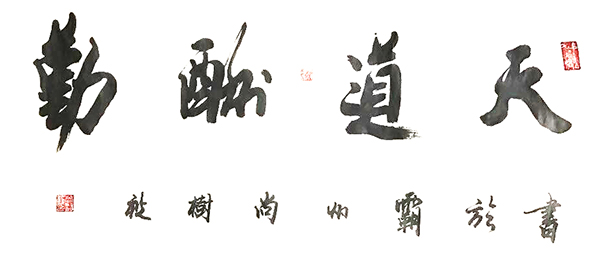 天道酬勤
書於霸州尚樹